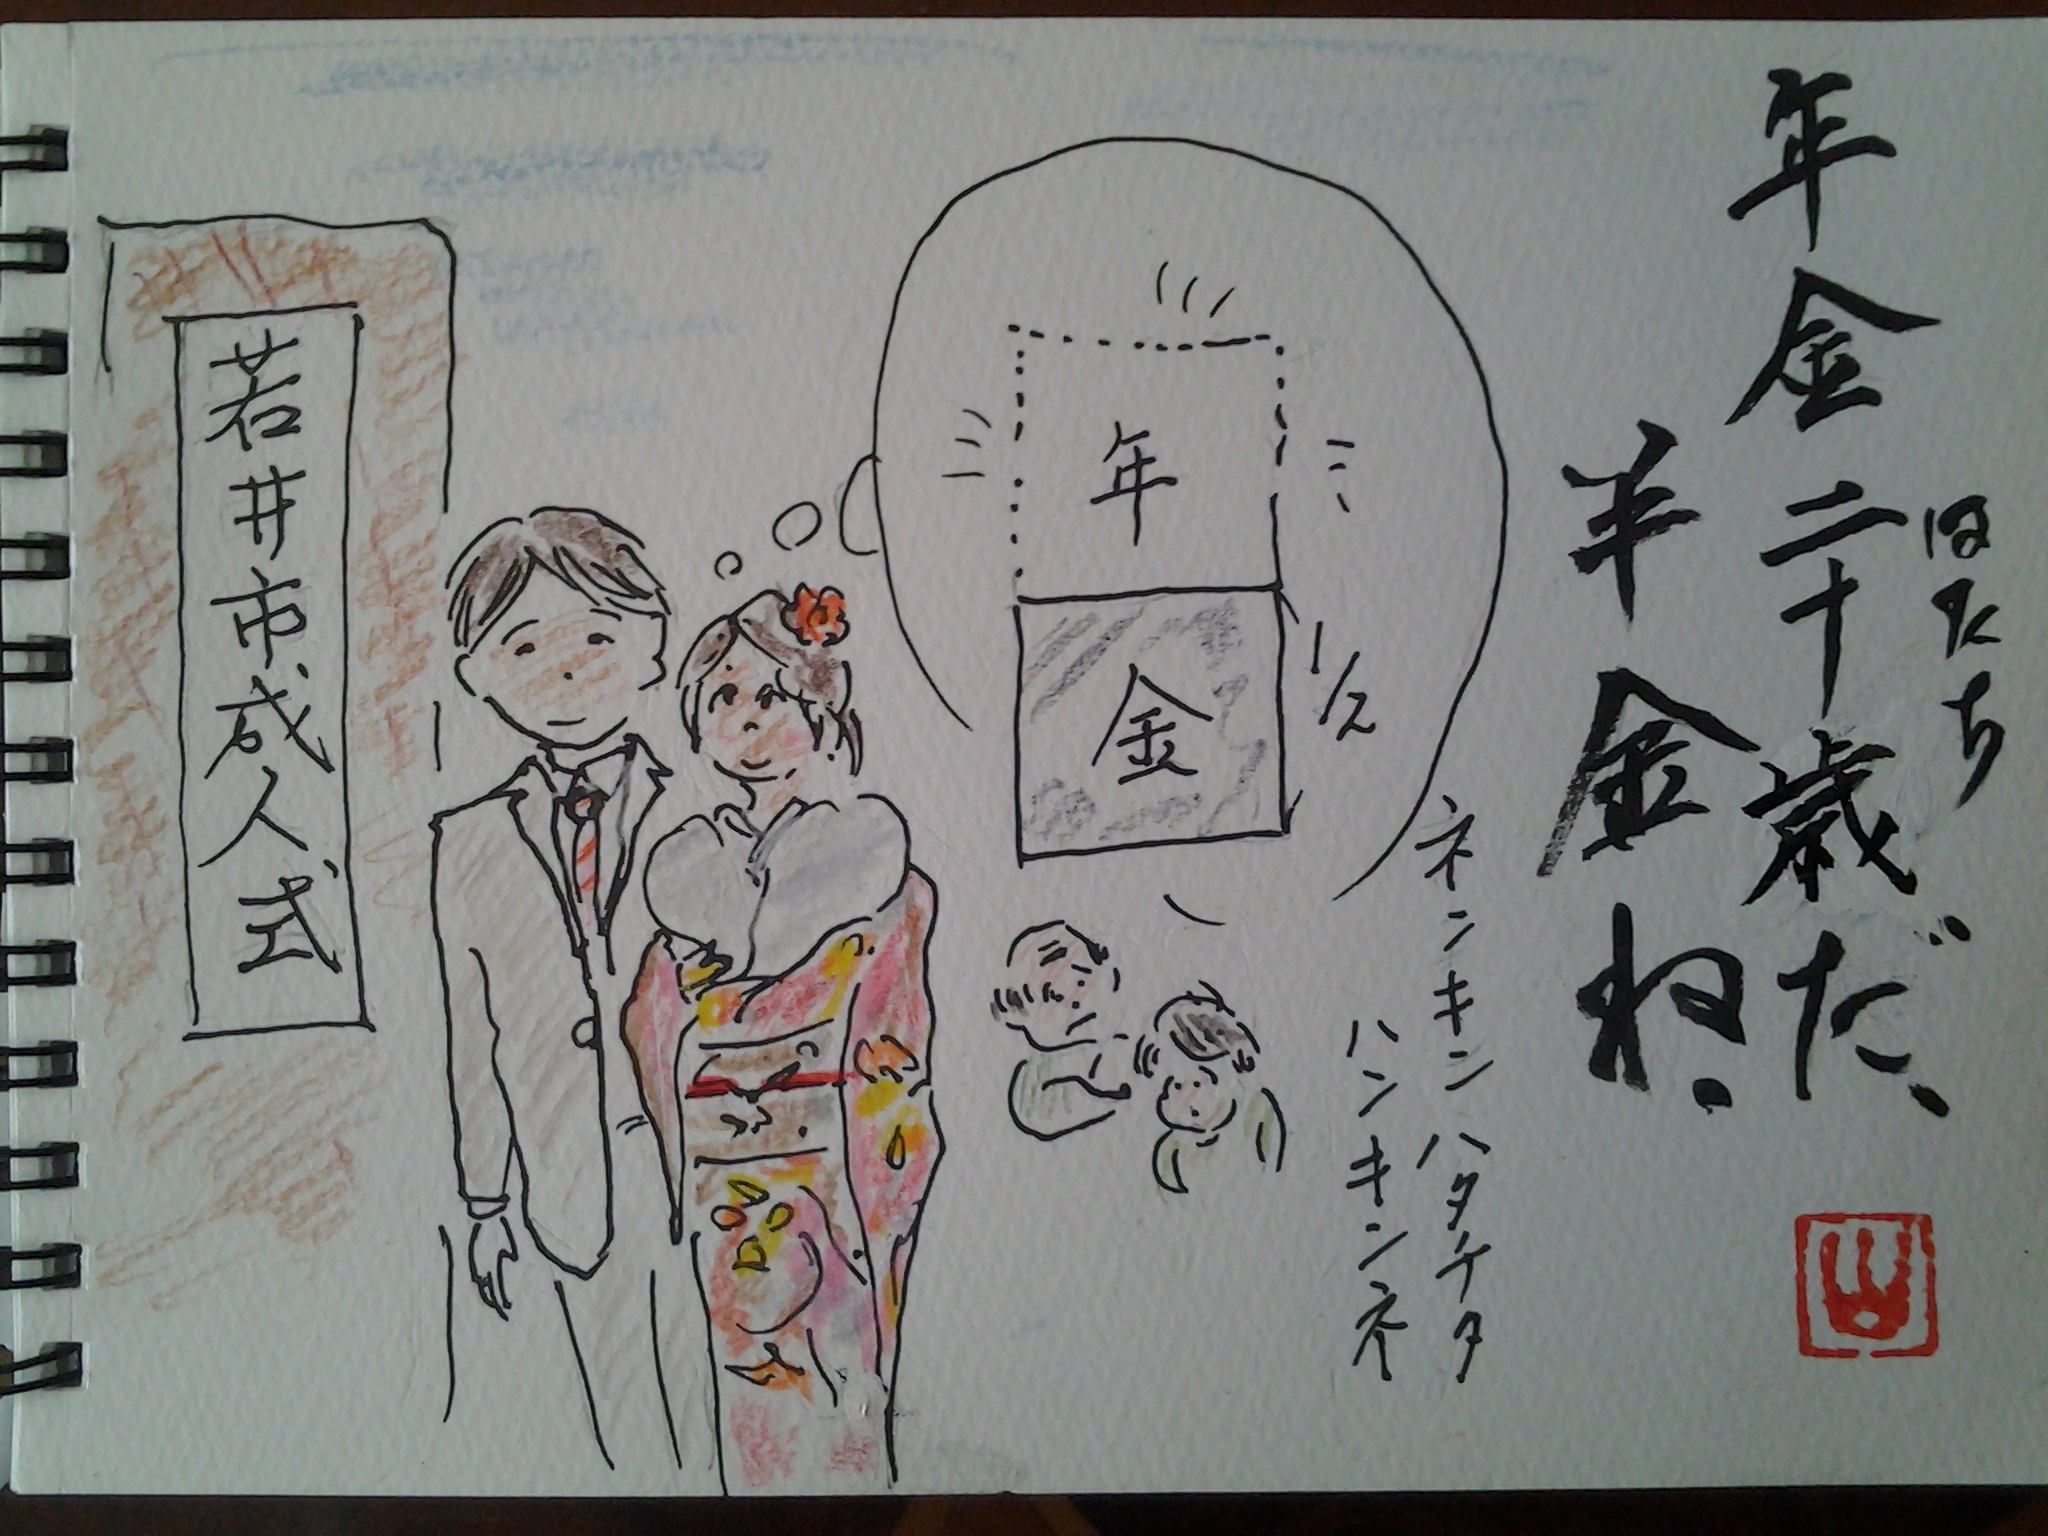 年金二十歳だ、
はたち
半金ね、
ネンキンハタチタ
ハンキンネ
年
金
1/2
若井市成人式